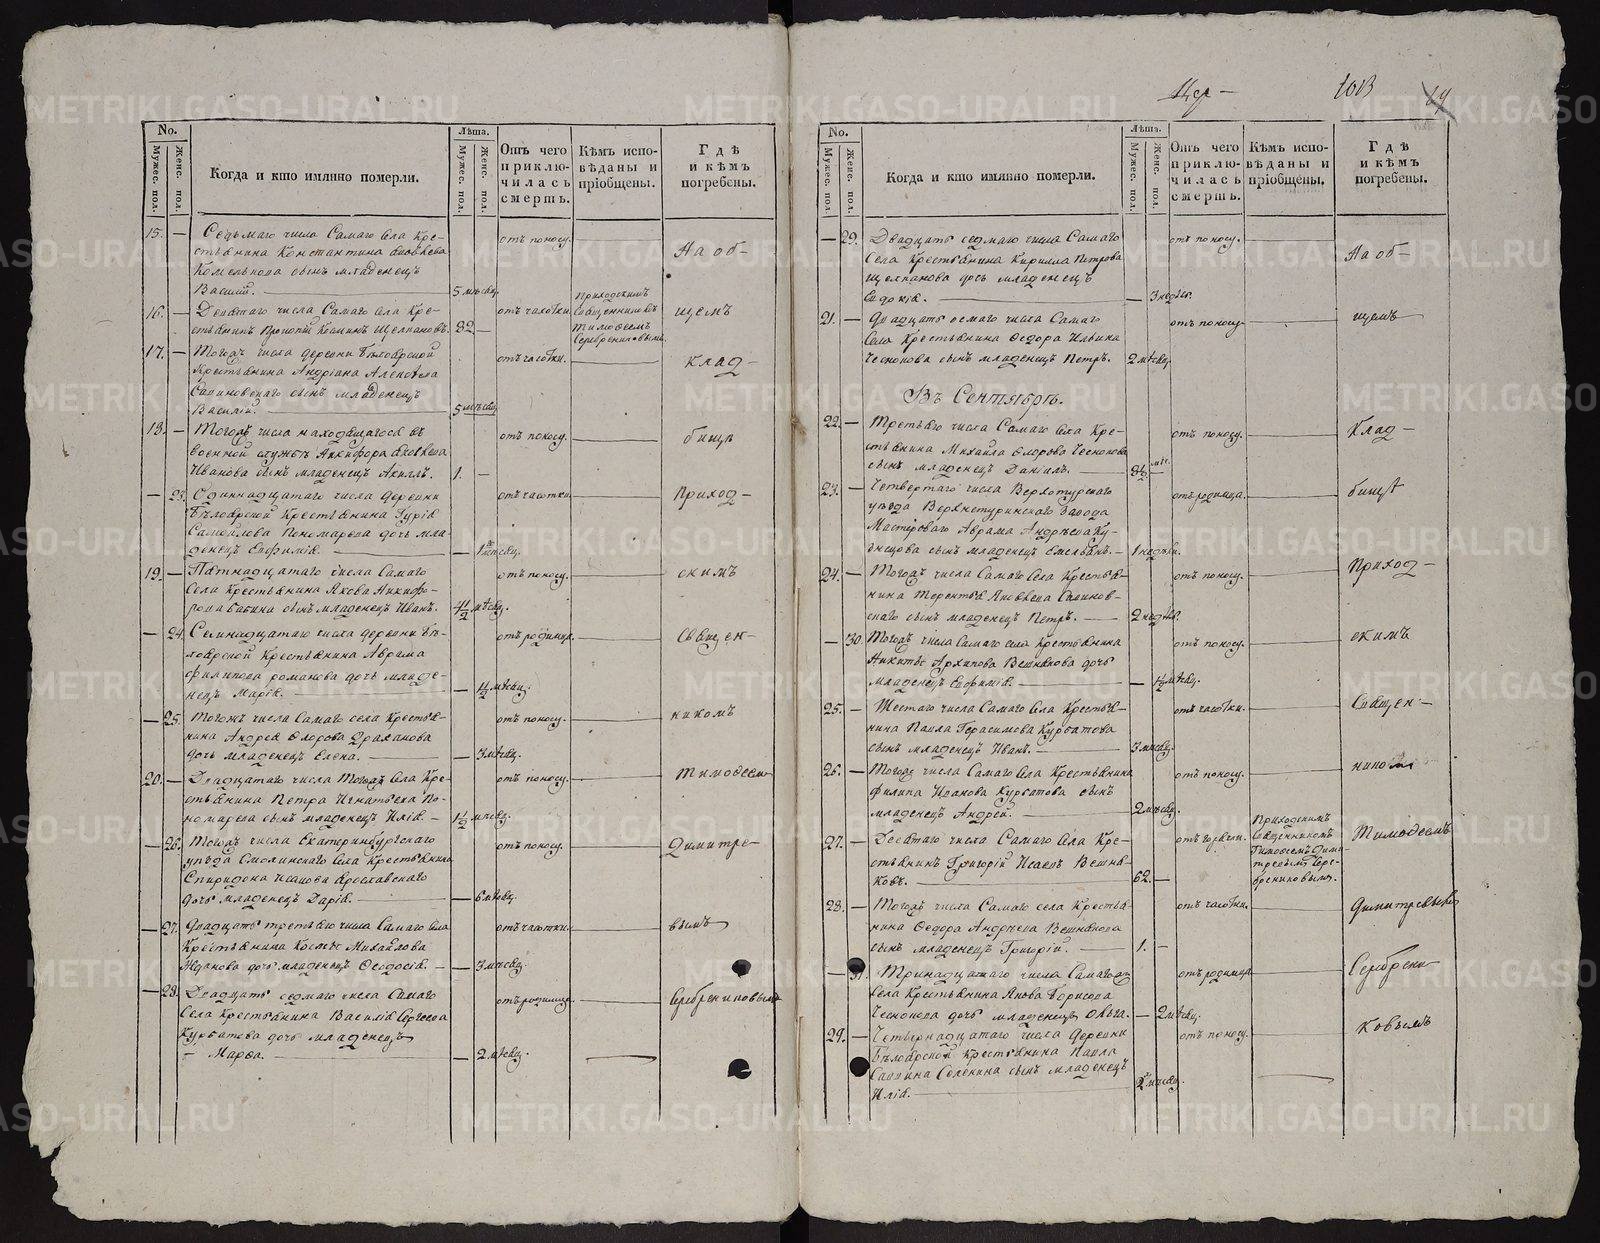 No.
Мужес. пол.
Женс. пол.
Когда и кто имянно померли.
Лѣта.
Мужес. пол.
Женс. пол.
Отъ чего приклю-чилась смерть.
Кѣмъ испо-вѣданы и пріобщены.
Гдѣ и кѣмъ погребены.
15. — Седьмаго числа Самаго Села Кре-
стьянина Константина Яковлева
сынъ младенецъ
Василій. 5 мѣсяц. отъ поносу.
16. — Девятаго числа Самаго Села Кре-
стьянинъ Прокопій Козминъ Щелкановъ. 82. — отъ чахотки.
Приходскимъ
Священникомъ
Тимофеемъ
Серебрениковымъ.
17. — Тогожъ числа деревни Бѣлоярской
Крестьянина Андріана Алексѣева
сынъ младенецъ
Василій. 5 мѣсяц. отъ чахотки.
18. — Тогожъ числа находящагося въ
военной службѣ Никифора Яковлева
Иванова сынъ младенецъ Кириллъ. 1. — отъ поносу.
— 23. Одиннадцатаго числа деревни
Бѣлоярской Крестьянина Гурія
Самойлова Пономарева дочь мла-
денецъ Евфимія. — мѣсяц. отъ чахотки.
19. — Пятнадцатаго числа Самаго
Села Крестьянина Якова Никифо-
рова Бабина сынъ младенецъ Иванъ. 4 1/2 мѣсяц. отъ поносу.
— 24. Семнадцатаго числа деревни Бѣ-
лоярской Крестьянина Аврама
Филипова Романова дочь младе-
нецъ Марія. — 1 1/2 мѣсяц. отъ родимца.
— 25. Тогожъ числа Самаго села Крестья-
нина Андрея Ѳедорова
дочь младенецъ Елена. — 3 мѣсяц. отъ поносу.
20. — Двадцатаго числа Тогожъ Села Кре-
стьянина Петра Игнатьева По-
номарева сынъ младенецъ Илія. 1 1/2 мѣсяц. отъ поносу.
— 26. Тогожъ числа Екатеринбургскаго
уѣзда Смолинскаго Села Крестьянина
Спиридона Исакова Ярославскаго
дочь младенецъ Дарія. — 6 мѣсяц. отъ поносу.
— 27. Двадцать третьяго числа Самаго Села
Крестьянина Космы Михайлова
Жданова дочь младенецъ Ѳеодосія. — 3 мѣсяц. отъ чахотки.
— 28. Двадцать седмаго числа Самаго
Села Крестьянина Василія Сергеева
Курбатова дочь младенецъ
Марѳа. — 2 мѣсяц. отъ родимца.
На об-
щемъ
клад-
бищѣ
Приход-
скимъ
Священ-
никомъ
Тимофеемъ
Димитре-
вымъ
Серебрениковымъ
1013
No.
Мужес. пол.
Женс. пол.
Когда и кто имянно померли.
Лѣта.
Мужес. пол.
Женс. пол.
Отъ чего приклю-чилась смерть.
Кѣмъ испо-вѣданы и пріобщены.
Гдѣ и кѣмъ погребены.
— 29. Двадцать седмаго числа Самаго
Села Крестьянина Кирилла Петрова
Щелканова дочь младенецъ
Евдокія. — 3 недѣл. отъ поносу.
21. — Двадцать осмаго числа Самаго
Села Крестьянина Ѳедора Ильина
Чеснокова сынъ младенецъ Петръ. 2 мѣсяц. отъ поносу
Въ Сентябрѣ.
22. — Третьяго числа Самаго Села Кре-
стьянина Михаила Ѳедорова Чеснокова
сынъ младенецъ Даніилъ. мѣс. отъ поносу.
23. — Четвертаго числа Верхотурскаго
уѣзда Верхнетуринскаго Завода
Мастероваго Аврама Андреева Ку-
знецова сынъ младенецъ Емельянъ. 1 недѣли. отъ родимца.
24. — Тогожъ числа Самаго Села Крестья-
нина Терентья Яковлева
сынъ младенецъ Петръ. 2 недѣл. отъ поносу.
— 30. Тогожъ числа Самаго села Крестьянина
Никиты Архипова Вешнякова дочь
младенецъ Евфимія. — 1 1/2 мѣсяц. отъ поносу.
25. — Шестаго числа Самаго Села Крестья-
нина Павла Герасимова Курбатова
сынъ младенецъ Иванъ. 3 мѣсяц. отъ чахотки.
26. — Тогожъ числа Самаго Села Крестьянина
Филипа Иванова Курбатова сынъ
младенецъ Андрей. 2 мѣсяц. отъ поносу.
27. — Десятаго числа Самаго Села Кре-
стьянинъ Григорій Исаевъ Вешня-
ковъ. 62. — отъ горячки.
Приходскимъ
Священникомъ
Тимофеемъ Дими-
тревымъ Сере-
брениковымъ.
28. — Тогожъ числа Самаго села Крестья-
нина Ѳедора Андреева Вешнякова
сынъ младенецъ Григорій. 1. — отъ чахотки.
— 31. Тринадцатаго числа Самаго
Села Крестьянина Якова Борисова
Чеснокова дочь младенецъ Ольга. — 2 мѣсяц. отъ родимца
29. — Четырнадцатаго числа деревни
Бѣлоярской Крестьянина Павла
Савина Селенина сынъ младенецъ
Илія. мѣсяц. отъ поносу.
На об-
щемъ
Клад-
бищѣ
Приход-
скимъ
Священ-
никомъ
Тимофеемъ
Димитревымъ
Серебрени-
ковымъ
METRIKI.GASO-URAL.RU